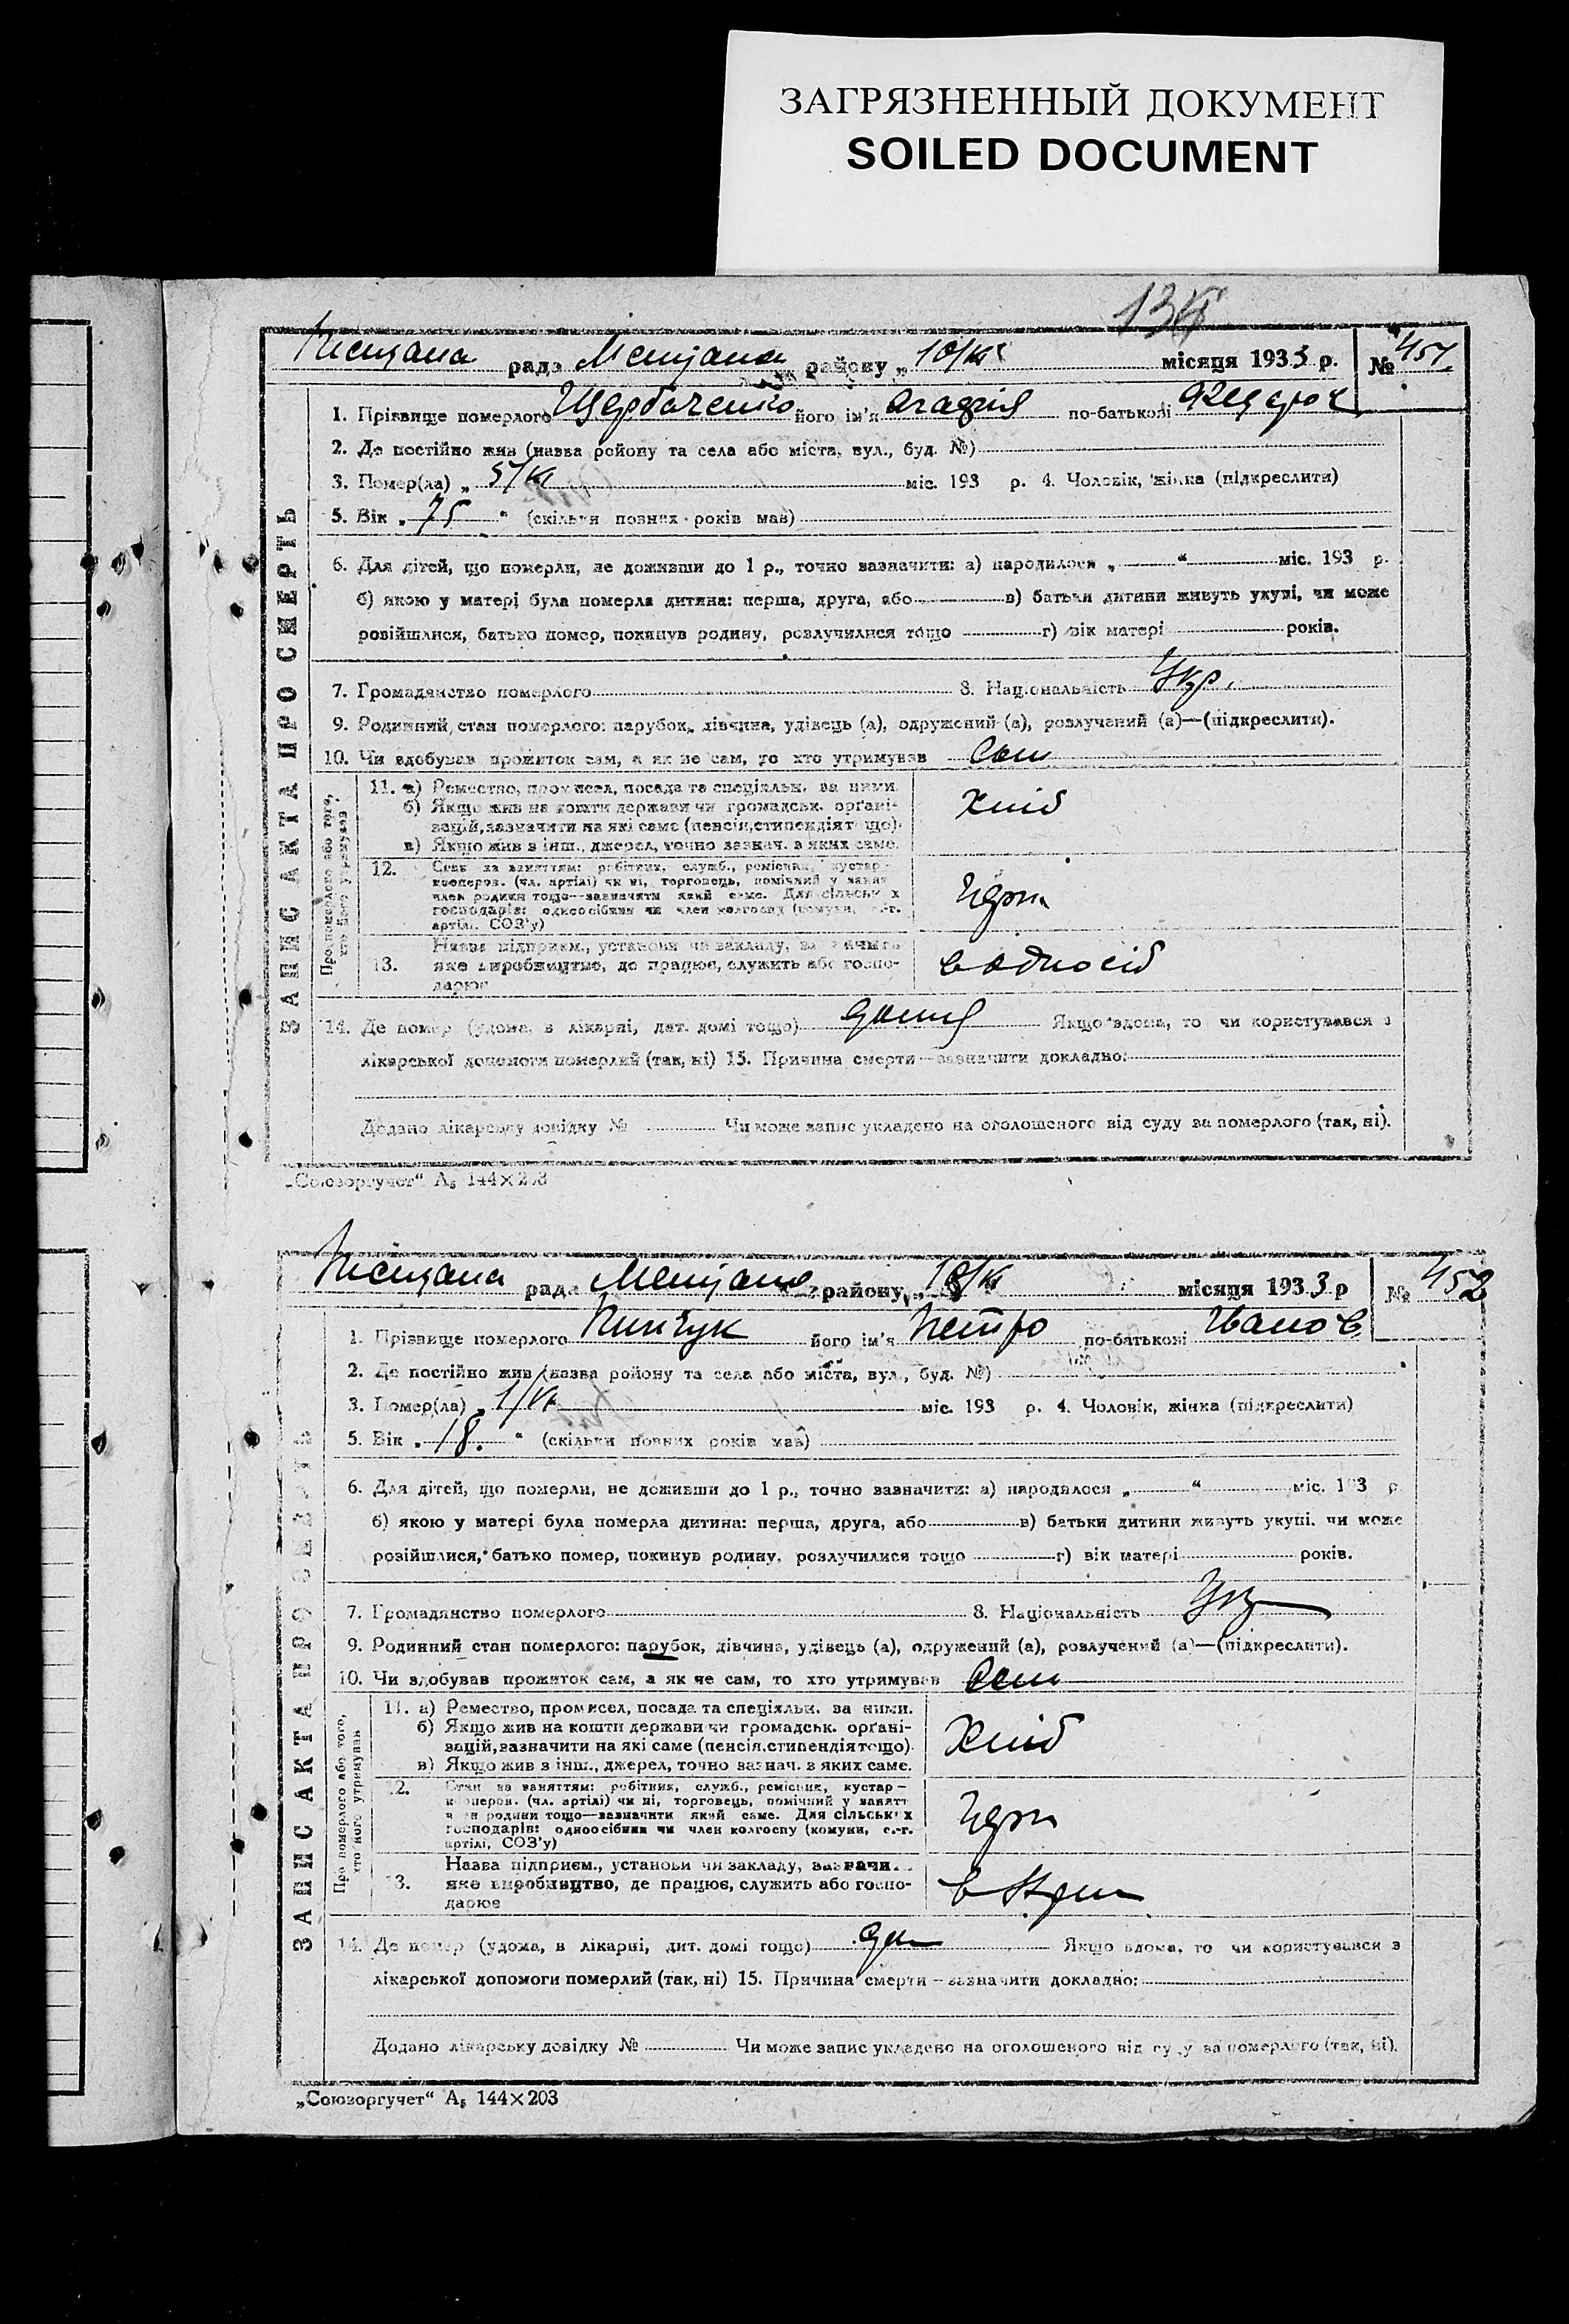 ЗАГРЯЗНЕННЫЙ ДОКУМЕНТ
SOILED DOCUMENT
рада района „ 10/ місяця 1933 р. № 451
1. Прізвище померлого Щербаченко його ім'я по-батькові
2. Де постійно жив (назва району та села або міста, вул., буд. №)
3. Помер(ла) „ 5/ міс. 193 р. 4. Чоловік, жінка (підкреслити)
5. Вік „ 75 “ (скільки повних років мав)
6. Для дітей, що померли, не доживши до 1 р., точно зазначити: а) народилося „ “ міс. 193 р.
б) якою у матері була померла дитина: перша, друга, або в) батьки дитини живуть укупі, чи може
розійшлися, батько помер, покинув родину, розлучилися тощо г) вік матері років.
7. Громадянство померлого 8. Національність Укр.
9. Родинний стан померлого: парубок, дівчина, удівець (а), одружений (а), розлучений (а)—(підкреслити).
10. Чи здобував прожиток сам, а як не сам, то хто утримував Сам
11. а) Ремество, промисел, посада та спеціяльн. за ними.
б) Якщо жив на кошти держави чи громадськ. орґані-
зацій, зазначити на які саме (пенсія, стипендія тощо).
в) Якщо жив з інш., джерел, точно зазнач. з яких саме.
Хліб
12. Стан за заняттям: робітник, служб., ремісник, кустар-
кооперов. (чл. артілі) чи ні, торговець, помічний у занятт
член родини тощо—зазначити який саме. Для сільських
господарів: одноосібник чи член колгоспу (комуни, с.-г.
артілі, СОЗ'у)
13. Назва підприєм., установи чи закладу, зазначить
яке виробництво, де працює, служить або госпо-
дарює
в односіб
14. Де помер (удома, в лікарні, дит. домі тощо) дома Якщо вдома, то чи користувався з
лікарської допомоги померлий (так, ні) 15. Причина смерти—зазначити докладно:
Додано лікарську довідку № Чи може запис укладено на оголошеного від суду за померлого (так, ні).
ЗАПИС АКТА ПРО СМЕРТЬ
Про померлого або того,
хто його утримував
„Союзоргучет“ А₅ 144×203
рада району „ 10/ місяця 1933 р № 452
1. Прізвище померлого Пинчук його ім'я Петро по-батькові Іванов
2. Де постійно жив (назва району та села або міста, вул., буд. №)
3. Помер(ла) „ 1/ міс. 193 р. 4. Чоловік, жінка (підкреслити)
5. Вік „ 18. “ (скільки повних років мав)
6. Для дітей, що померли, не доживши до 1 р., точно зазначити: а) народилося „ “ міс. 193 р
б) якою у матері була померла дитина: перша, друга, або в) батьки дитини живуть укупі, чи може
розійшлися, батько помер, покинув родину, розлучилися тощо г) вік матері років.
7. Громадянство померлого 8. Національність Укр
9. Родинний стан померлого: парубок, дівчина, удівець (а), одружений (а), розлучений (а)—(підкреслити).
10. Чи здобував прожиток сам, а як не сам, то хто утримував Сам
11. а) Ремество, промисел, посада та спеціяльн. за ними.
б) Якщо жив на кошти держави чи громадськ. орґані-
зацій, зазначити на які саме (пенсія, стипендія тощо).
в) Якщо жив з інш., джерел, точно зазнач. з яких саме.
Хліб
12. Стан за заняттям: робітник, служб., ремісник, кустар—
кооперов. (чл. артілі) чи ні, торговець, помічний у занятт
член родини тощо—зазначити який саме. Для сільських
господарів: одноосібник чи член колгоспу (комуни, с.-г.
артілі, СОЗ'у)
13. Назва підприєм., установи чи закладу, зазначи
яке виробництво, де працює, служить або госпо-
дарює
14. Де помер (удома, в лікарні, дит. домі тощо) Якщо вдома, то чи користувався з
лікарської допомоги померлий (так, ні) 15. Причина смерти—зазначити докладно:
Додано лікарську довідку № Чи може запис укладено на оголошеного від суду за померлого (так, ні).
ЗАПИС АКТА ПРО СМЕРТЬ
Про померлого або того,
хто його утримував
„Союзоргучет“ А₅ 144×203